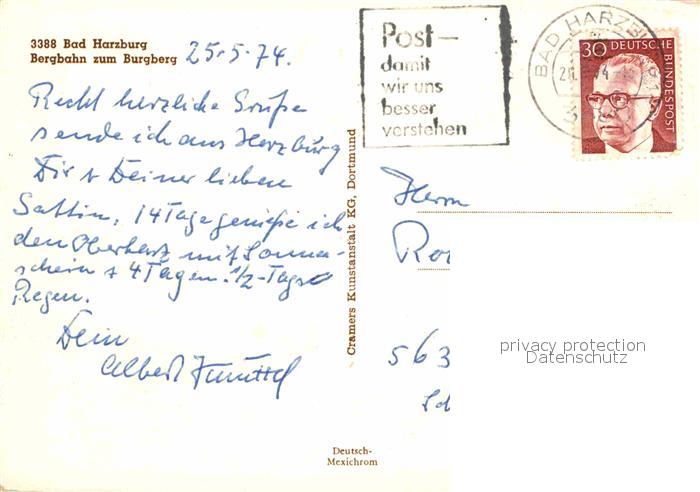 3388 Bad Harzburg
Bergbahn zum Burgberg
25.5.74.
Recht herzliche Grüße
sende ich aus Harzburg
Dir & Deiner lieben
Gattin, 14 Tage genieße ich
den Oberharz mit Sonnen-
schein + 4 Tagen 1/2-Tags
Regen.
Dein
Albert
Cramers Kunstanstalt KG, Dortmund
Post–
damit
wir uns
besser
verstehen
BAD HARZBURG 1
30 DEUTSCHE
BUNDESPOST
Herrn
563
privacy protection
Datenschutz
Deutsch-
Mexichrom